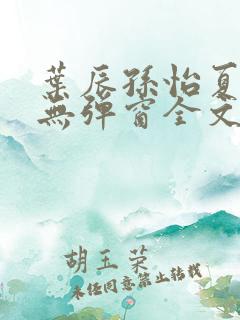 葉辰孫怡夏
無彈窗全文
胡玉荣
未经同意禁止转载